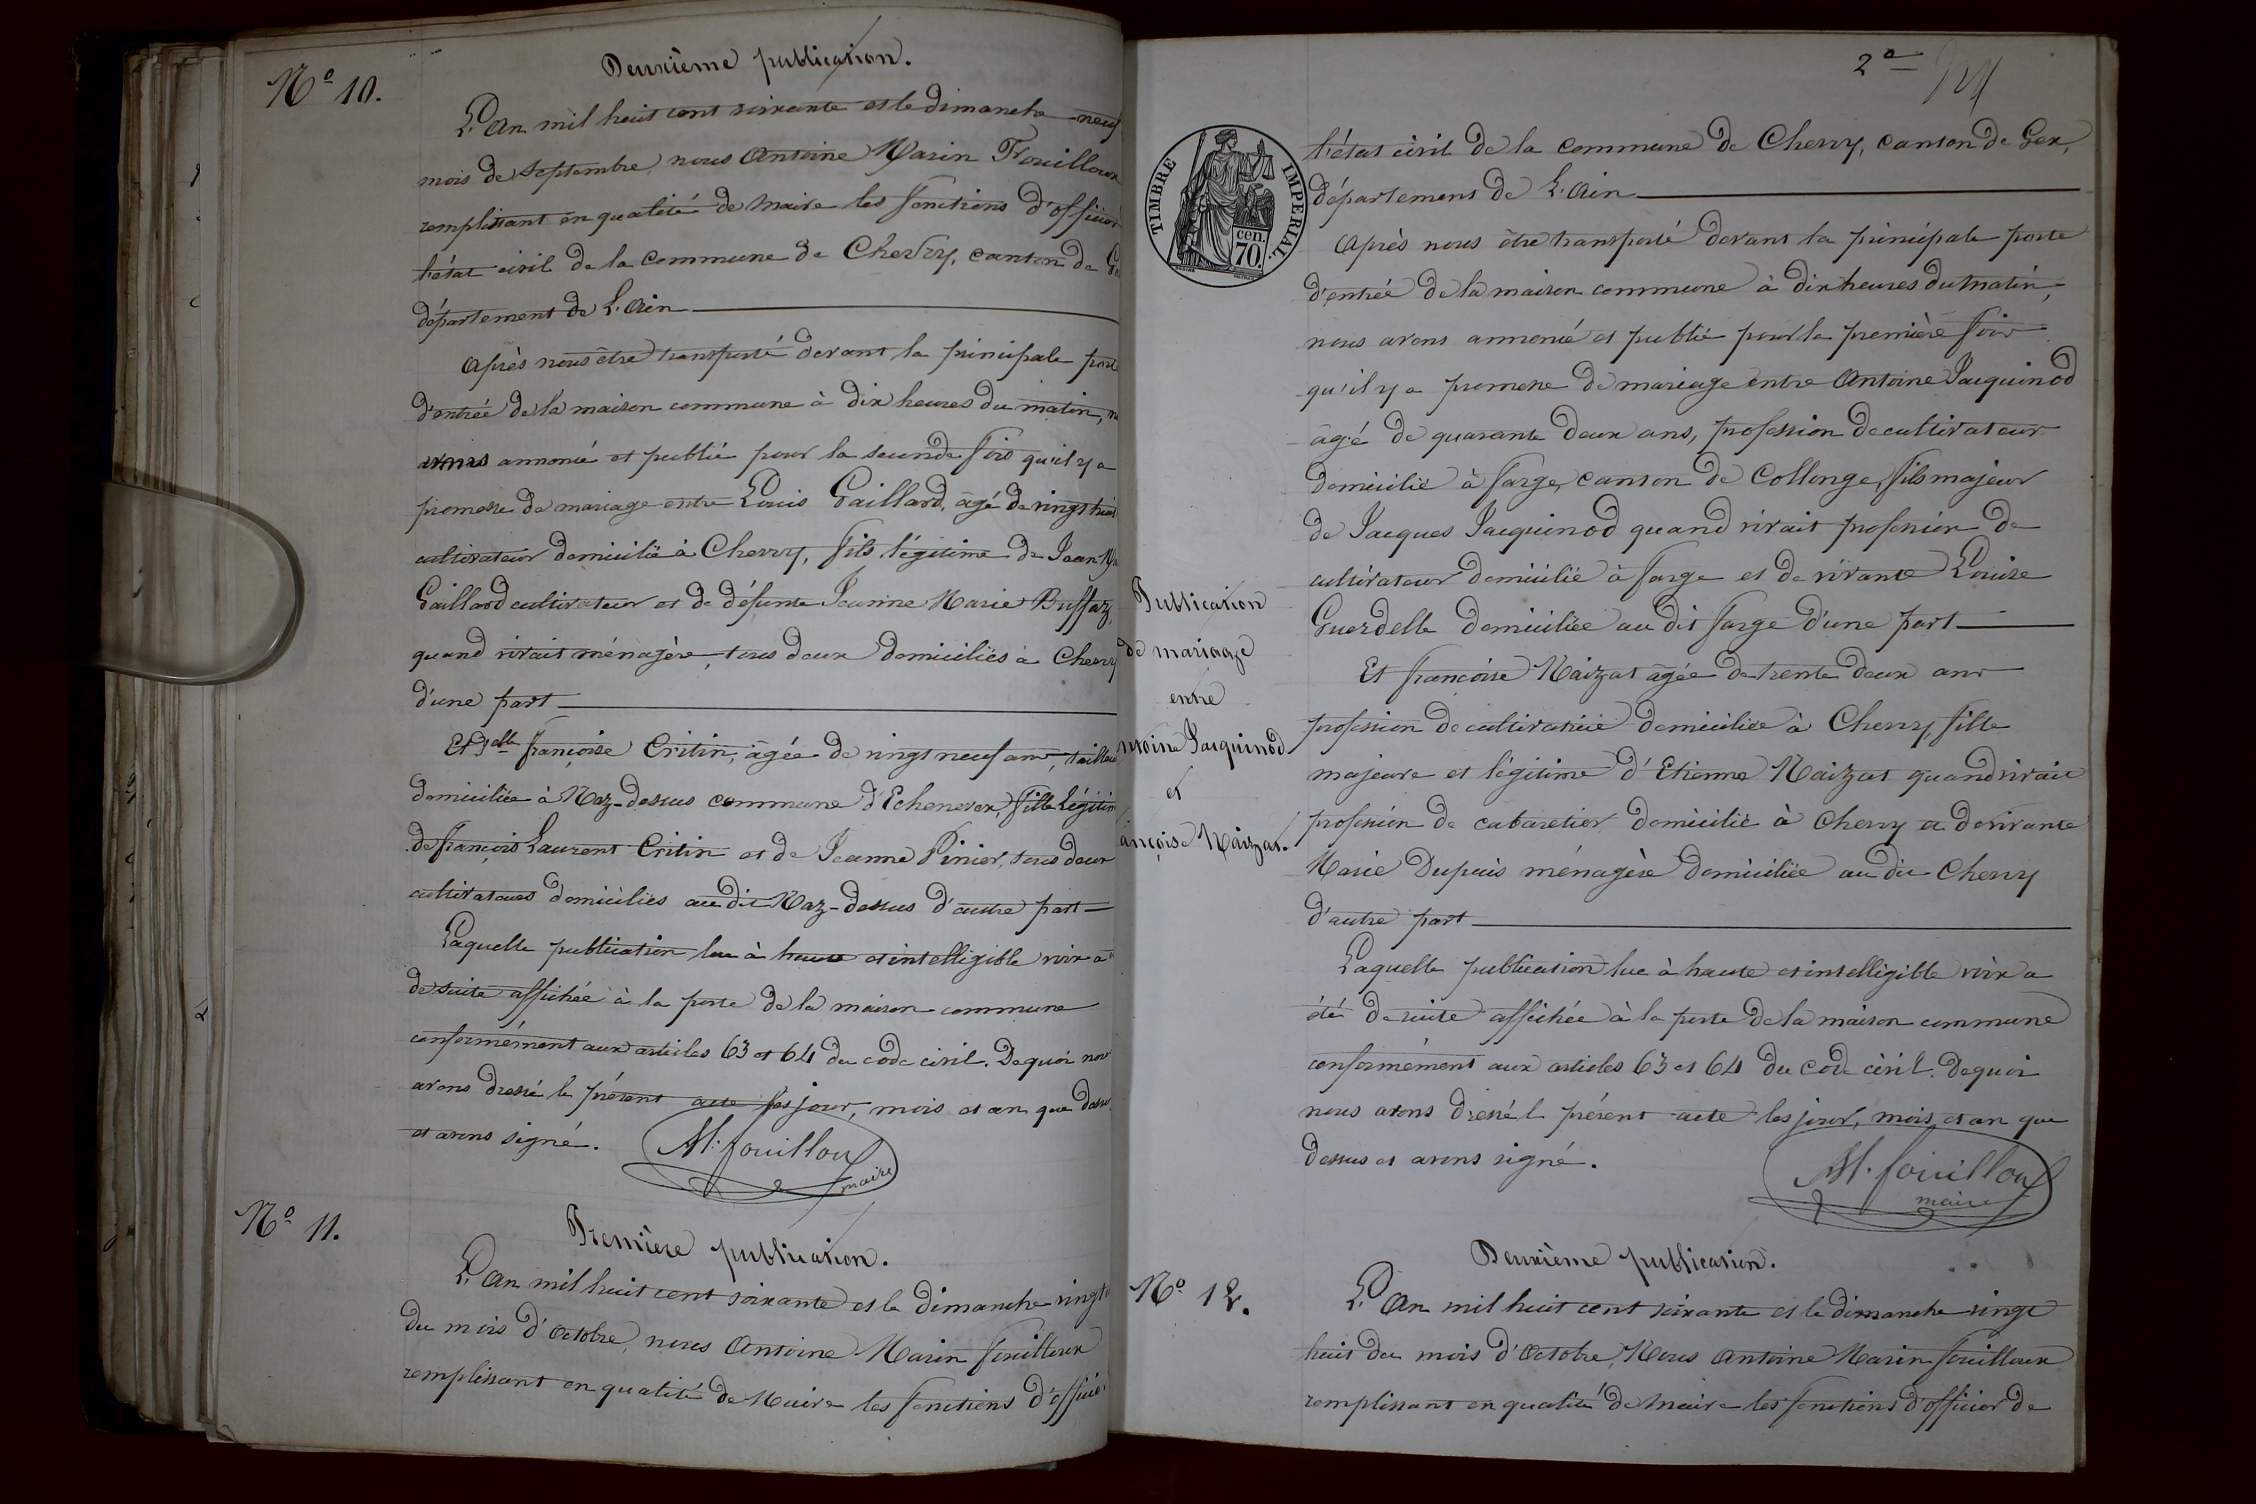 Nº 10.
Deuxième publication.
L'an mil huit cent soixante et le dimanche neuf
mois de Septembre, nous Antoine Marin Fouilloux
remplissant en qualité de Maire les fonctions d'officier
l'état civil de la Commune de Chevry, canton de G
département de L'Ain
Après nous être transporté devant la principale porte
d'entrée de la maison commune à dix heures du matin, n
avons annoncé et publié pour la seconde fois qu'il y a
promesse de mariage entre Louis Gaillard, âgé de vingt huit
cultivateur domicilié à Chevry, fils légitime de Jean M
Gaillard cultivateur et de défunte Jeanne Marie Buffaz,
quand vivait ménagère, tous deux domiciliés à Chevry
d'une part
Et Delle Françoise Critin, âgée de vingt neuf ans, tailleu
domiciliée à Naz-dessus commune d'Echenevex, fille légitim
de François Laurent Critin et de Jeanne Pinier, tous deux
cultivateurs domiciliés au dit Naz-dessus d'autre part
Laquelle publication lue à haute et intelligible voix a
de suite affichée à la porte de la maison commune
conformément aux articles 63 et 64 du code civil. De quoi nous
avons dressé le présent acte les jour, mois et an que dessu
et avons signé.
AM. fouilloux
maire
Nº 11.
Première publication.
L'an mil huit cent soixante et le dimanche vingt
du mois d'Octobre, nous Antoine Marin Fouilloux
remplissant en qualité de Maire les fonctions d'officier
2e
l'état civil de la Commune de Chevry, canton de Gex,
département de L'Ain
TIMBRE IMPERIAL.
cen. 70.
Après nous être transporté devant la principale porte
d'entrée de la maison commune à dix heures du matin,
nous avons annoncé et publié pour la première fois
qu'il y a promesse de mariage entre Antoine Jacquinod
âgé de quarante deux ans, profession de cultivateur
domicilié à farge, canton de Collonge, fils majeur
de Jacques Jacquinod quand vivait profession de
cultivateur domicilié à farge et de vivante Louise
Guerdelle domiciliée au dit farge d'une part
Publication
de mariage
entre
ntoine Jacquinod
et
ançoise Naizat.
Et françoise Naizat âgée de trente deux ans
profession de cultivatrice domiciliée à Chevry, fille
majeure et légitime d'Etienne Naizat quand vivait
profession de cabaretier domicilié à Chevry et de vivante
Marie Dupuis ménagère domiciliée au dit Chevry
d'autre part
Laquelle publication lue à haute et intelligible voix a
été de suite affichée à la porte de la maison commune
conformément aux articles 63 et 64 du Code civil. De quoi
nous avons dressé l présent acte les jour, mois et an que
dessus et avons signé.
AM. fouilloux
maire
Deuxième publication.
Nº 12.
L'an mil huit cent soixante et le dimanche vingt
huit du mois d'Octobre, Nous Antoine Marin fouilloux
remplissant en qualité de Maire les fonctions d'officier de